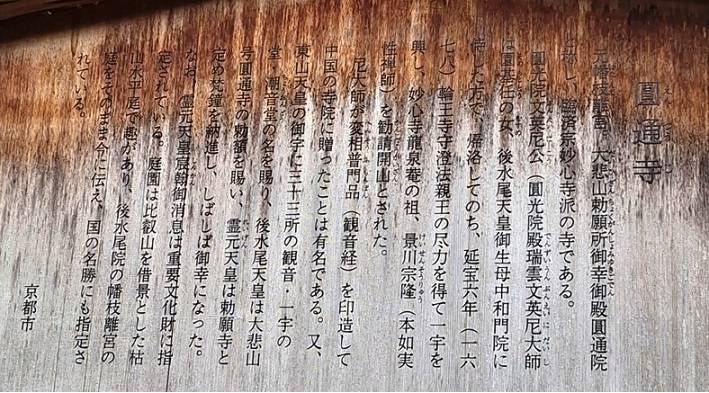 圓通寺
元幡枝離宮。大悲山勅願所御幸御殿圓通院
と称し、臨済宗妙心寺派の寺である。
圓光院文英尼公（圓光院殿瑞雲文英尼大師
は園基任の女、後水尾天皇御生母中和門院に
侍した方で、帰洛してのち、延宝六年（一六
七八）輪王寺守澄法親王の尽力を得て一宇を
興し、妙心寺龍泉庵の祖、景川宗隆（本如実
性禅師）を勧請開山とされた。
尼大師が変相普門品（観音経）を印造して
中国の寺院に贈ったことは有名である。又、
東山天皇の御宇に三十三所の観音・一宇の
堂、潮音堂の名を賜り、後水尾天皇は大悲山
号圓通寺の勅額を賜い、霊元天皇は勅願寺と
定め梵鐘を納進し、しばしば御幸になった。
なお、霊元天皇宸翰御消息は重要文化財に指
定されている。庭園は比叡山を借景とした枯
山水平庭で趣があり、後水尾院の幡枝離宮の
庭をそのまま今に伝え、国の名勝にも指定さ
れている。
京都市